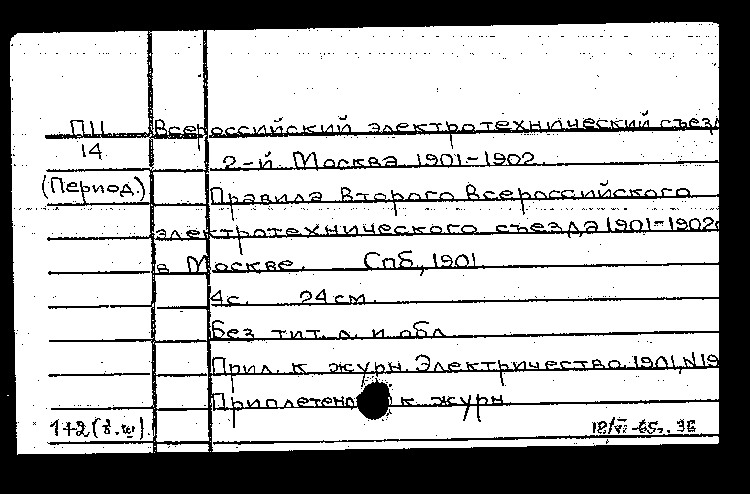 П11 Всероссийский электротехнический съезд
14 2-й Москва 1901-1902.
(Период.) Правила Второго Всероссийского
электротехнического съезда 1901-1902г
в Москве. Спб, 1901.
4с. 24см.
Без тит. л. и обл.
Прил. к журн. Электричество. 1901, N19
Приплетено к журн
1+2(8.ш) 18/VI-65г.